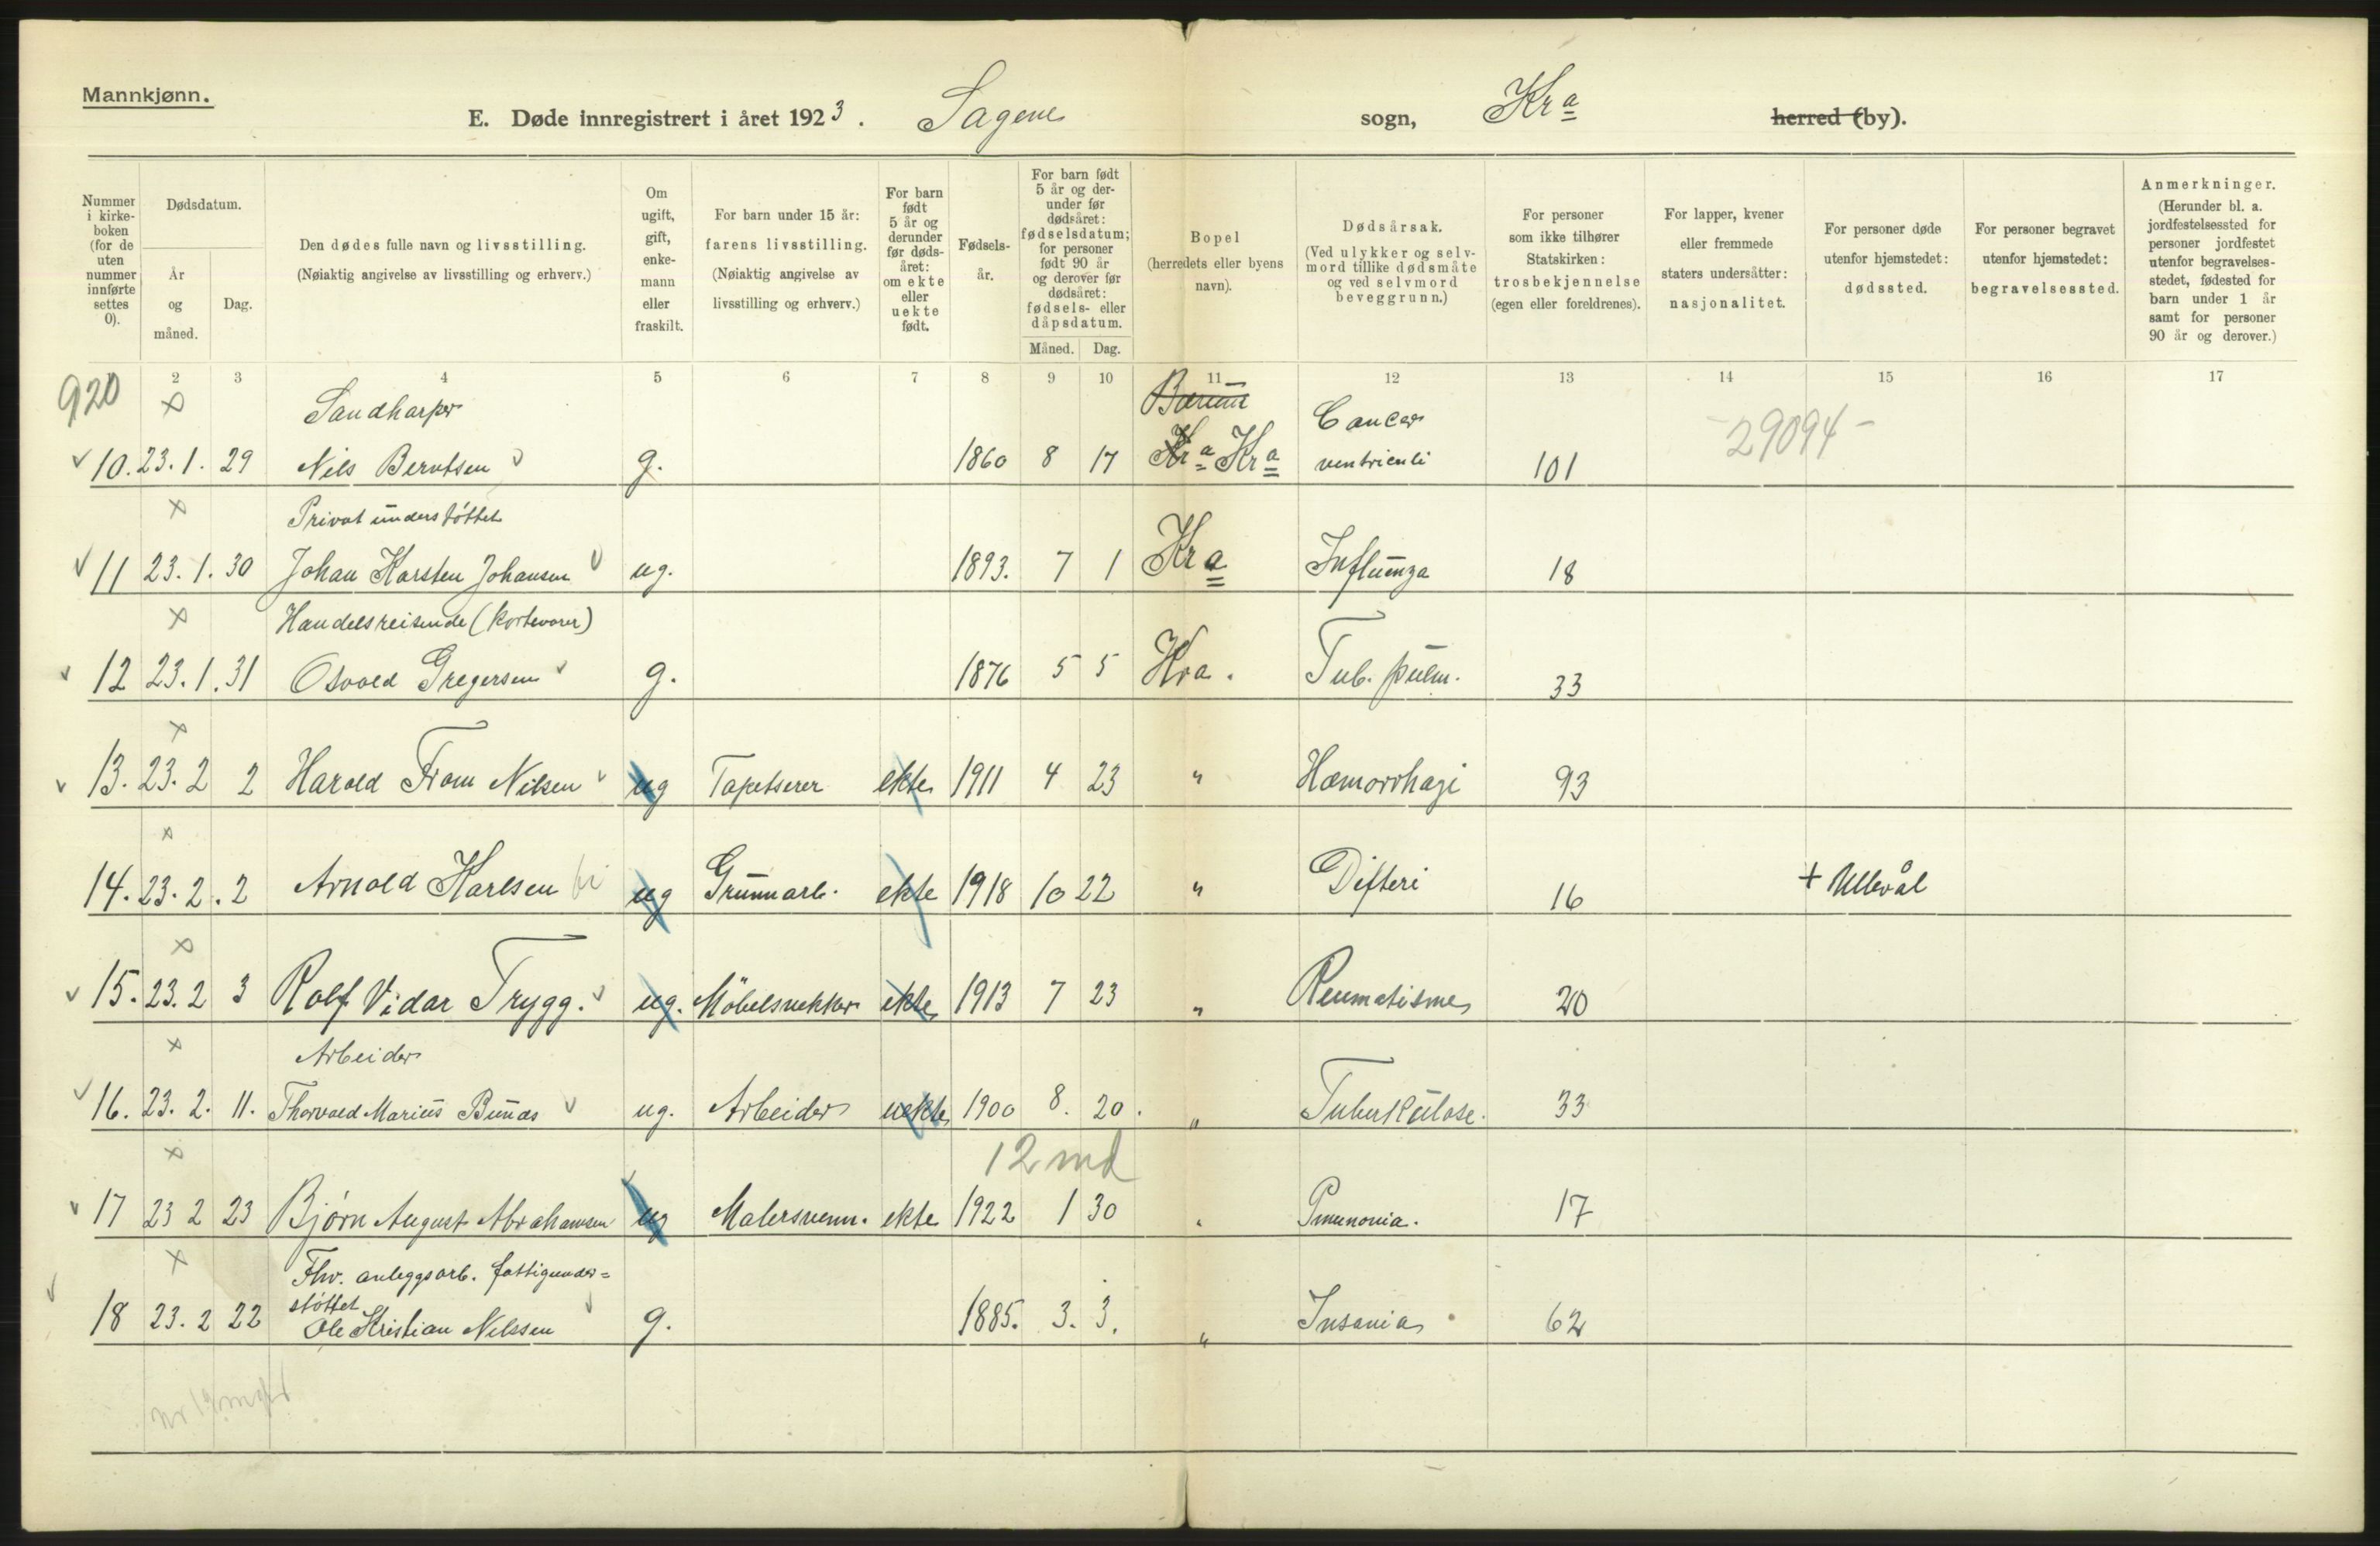 Mannkjønn.
E. Døde innregistrert i året 1923. Sagene sogn, Kra herred (by).
Nummer i kirke- boken (for de uten nummer innførte settes 0).
Dødsdatum.
År og måned.
Dag.
Den dødes fulle navn og livsstilling.
(Nøiaktig angivelse av livsstilling og erhverv.)
Om ugift, gift, enke- mann eller fraskilt.
For barn under 15 år: farens livsstilling.
(Nøiaktig angivelse av livsstilling og erhverv.)
For barn født 5 år og derunder før døds- året: om ekte eller uekte født.
Fødsels- år.
For barn født 5 år og der- under før dødsåret: fødselsdatum; for personer født 90 år og derover før dødsåret: fødsels- eller dåpsdatum.
Måned. Dag.
Bopel (herredets eller byens navn).
Dødsårsak.
(Ved ulykker og selv- mord tillike dødsmåte og ved selvmord beveggrunn.)
For personer som ikke tilhører Statskirken: trosbekjennelse (egen eller foreldrenes).
For lapper, kvener eller fremmede staters undersåtter: nasjonalitet.
For personer døde utenfor hjemstedet: dødssted.
For personer begravet utenfor hjemstedet: begravelsessted.
Anmerkninger.
(Herunder bl. a. jordfestelsessted for personer jordfestet utenfor begravelses- stedet, fødested for barn under 1 år samt for personer 90 år og derover.)
2 3 4 5 6 7 8 9 10 11 12 13 14 15 16 17
920 x Sandharper Bærum Cancer 29094
10. 23.1. 29 Nils Berntsen g. 1860 8 17 Kra Kra ventriculi 101
x Privat understøttet
11 23.1. 30 Johan Karsten Johansen ug. 1893. 7 1 Kra Influenza 18
x Handelsreisende (kortevarer)
12 23.1. 31 Osvald Gregersen g. 1876 5 5 Kra. Tub. pulm. 33
x
13. 23.2 2 Harald From Nilsen ug Tapetserer ekte 1911 4 23 " Hæmorrhagi 93
x
14. 23.2. 2 Arnold Karlsen ug Grunnarb. ekte 1918 10 22 " Difteri 16 + Ullevål
x
15. 23.2 3 Rolf Vidar Trygg. ug. Möbelsnekker ekte 1913 7 23 " Reumatisme 20
x Arbeider
16. 23.2. 11. Thorvald Marius Bunæs ug. Arbeider uekte 1900 8. 20. " Tuberkulose. 33
x 12 md
17 23 2 23 Bjørn August Abrahamsen ug Malersvenn. ekte 1922 1 30 " Pneunonia. 17
x Fhv. anleggsarb. fattigunder=
støttet
18 23.2 22 Ole Kristian Nilssen g. 1885. 3. 3. " Insania 62